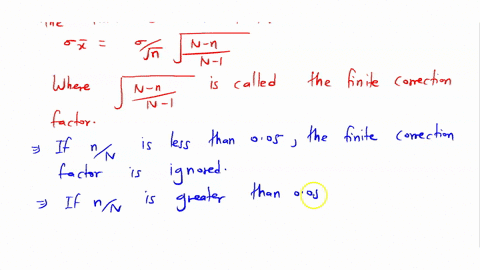 the
σx̄ = σ/√n √(N-n/N-1)
Where √(N-n/N-1) is called the finite correction
factor.
⇒ If n/N is less than 0.05, the finite correction
factor is ignored.
⇒ If n/N is greater than 0.05